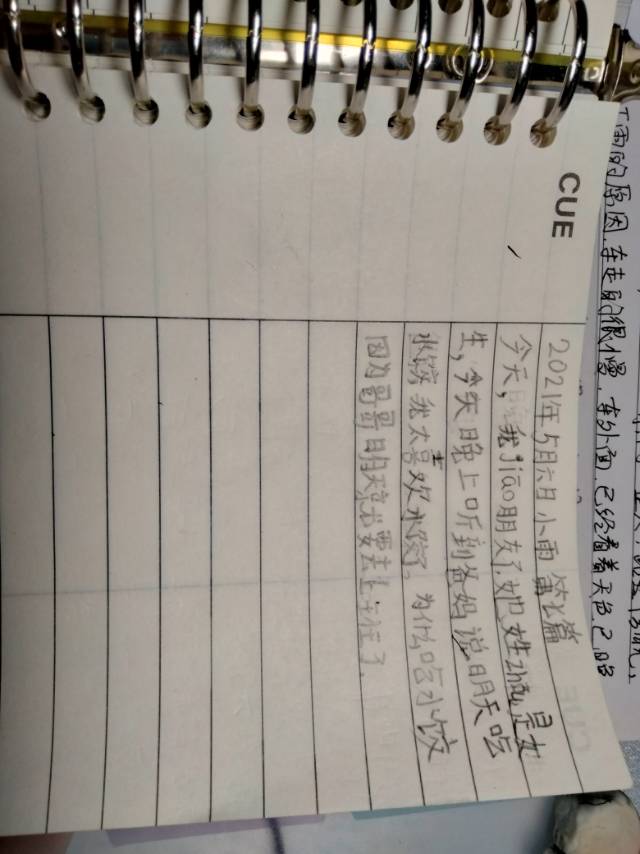 CUE
2021年5月六日 小雨 第2篇
今天,我jiāo朋友了,她姓zhōu,是女
生,今天晚上听到爸妈说明天吃
水饺我太喜欢水饺,为什么吃水饺
因为哥哥明天要去上学了,
下雨的原因,车走的很慢,车外面,已经看着天色已